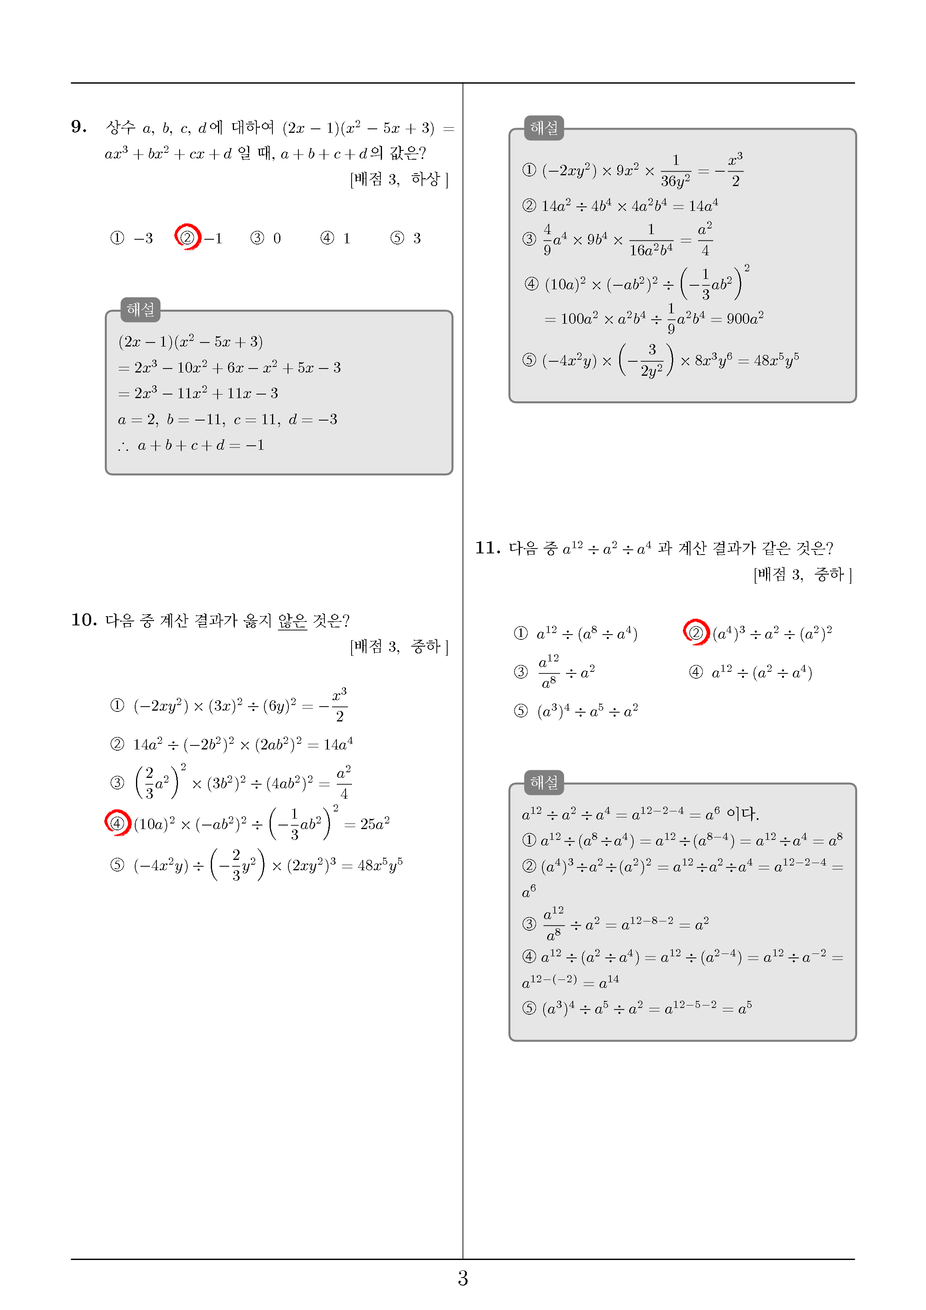 9. 상수 a, b, c, d에 대하여 (2x − 1)(x² − 5x + 3) =
ax³ + bx² + cx + d 일 때, a + b + c + d의 값은?
[배점 3, 하상]
① −3 ② −1 ③ 0 ④ 1 ⑤ 3
해설
(2x − 1)(x² − 5x + 3)
= 2x³ − 10x² + 6x − x² + 5x − 3
= 2x³ − 11x² + 11x − 3
a = 2, b = −11, c = 11, d = −3
∴ a + b + c + d = −1
10. 다음 중 계산 결과가 옳지 않은 것은?
[배점 3, 중하]
① (−2xy²) × (3x)² ÷ (6y)² = −x³/2
② 14a² ÷ (−2b²)² × (2ab²)² = 14a⁴
③ (2/3 a²)² × (3b²)² ÷ (4ab²)² = a²/4
④ (10a)² × (−ab²)² ÷ (−1/3 ab²)² = 25a²
⑤ (−4x²y) ÷ (−2/3 y²) × (2xy²)³ = 48x⁵y⁵
해설
① (−2xy²) × 9x² × 1/36y² = −x³/2
② 14a² ÷ 4b⁴ × 4a²b⁴ = 14a⁴
③ 4/9 a⁴ × 9b⁴ × 1/16a²b⁴ = a²/4
④ (10a)² × (−ab²)² ÷ (−1/3 ab²)²
= 100a² × a²b⁴ ÷ 1/9 a²b⁴ = 900a²
⑤ (−4x²y) × (−3/2y²) × 8x³y⁶ = 48x⁵y⁵
11. 다음 중 a¹² ÷ a² ÷ a⁴ 과 계산 결과가 같은 것은?
[배점 3, 중하]
① a¹² ÷ (a⁸ ÷ a⁴) ② (a⁴)³ ÷ a² ÷ (a²)²
③ a¹²/a⁸ ÷ a² ④ a¹² ÷ (a² ÷ a⁴)
⑤ (a³)⁴ ÷ a⁵ ÷ a²
해설
a¹² ÷ a² ÷ a⁴ = a¹²⁻²⁻⁴ = a⁶ 이다.
① a¹² ÷ (a⁸ ÷ a⁴) = a¹² ÷ (a⁸⁻⁴) = a¹² ÷ a⁴ = a⁸
② (a⁴)³ ÷ a² ÷ (a²)² = a¹² ÷ a² ÷ a⁴ = a¹²⁻²⁻⁴ =
a⁶
③ a¹²/a⁸ ÷ a² = a¹²⁻⁸⁻² = a²
④ a¹² ÷ (a² ÷ a⁴) = a¹² ÷ (a²⁻⁴) = a¹² ÷ a⁻² =
a¹²⁻⁽⁻²⁾ = a¹⁴
⑤ (a³)⁴ ÷ a⁵ ÷ a² = a¹²⁻⁵⁻² = a⁵
3